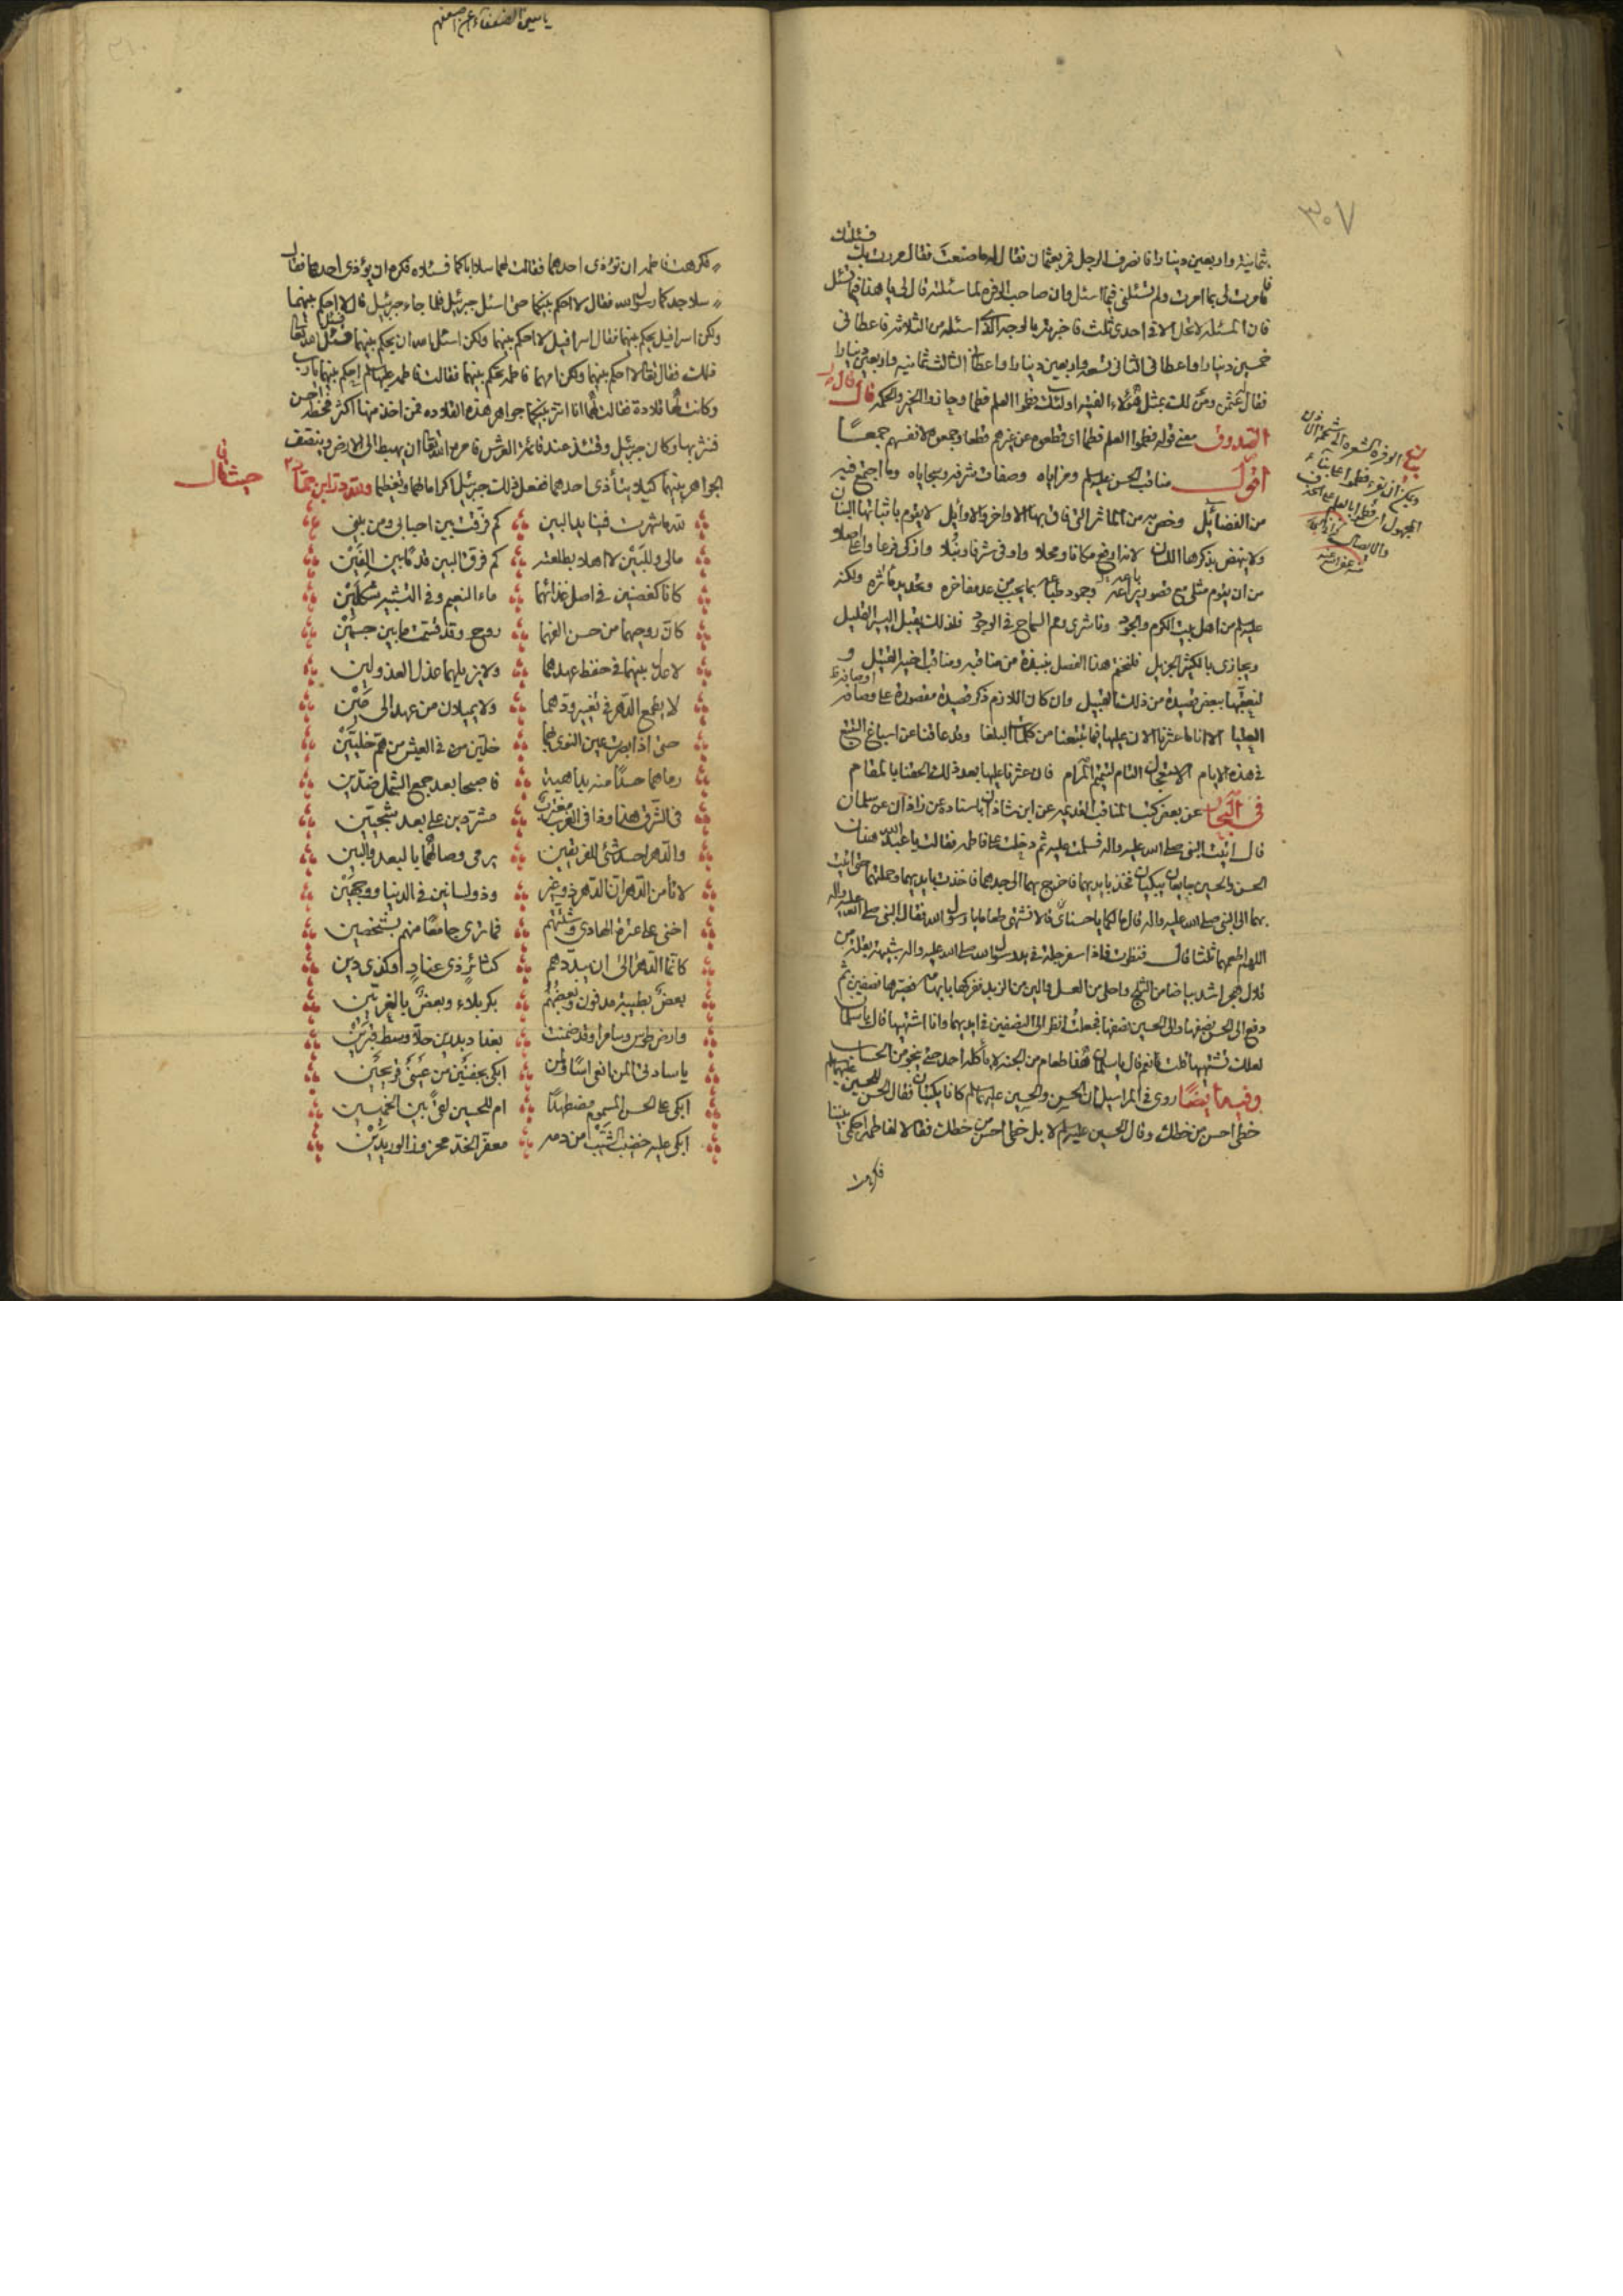 ٣٠٧
بثمانية واربعين دينارا فانصرف الرجل فمر بعثمان فقال له ما صنعت فقال مررت بك فسئلتك
فامرت لى بما امرت ولم تسئلنى فيما اسئل وان صاحب الوفرة لما سئلته قال لى يا هذا فيما تسئل
فان المسئلة لا تحل الا فى احدى ثلث فاخبرته بالوجه الذى اسئله من الثلاثة فاعطانى
خمسين دينارا واعطانى الثانى تسعة واربعين دينارا واعطانى الثالث ثمانية واربعين دينارا
فقال عثمن ومن لك بمثل هؤلاء الفتية اولئك فطموا العلم فطما وحازوا الخير والحكمة قال
الصدوق معنى قوله فطموا العلم فطما اى قطعوه عن غيرهم قطعا وجمعوه لانفسهم جمعًا
اقول مناقب الحسن عليه السلم ومزاياه وصفات شرفه وسجاياه وما اجتمع فيه
من الفضائل وخص به من المآثر التى فاق بها الاواخر والاوايل لا يقوم باثباتها البنان
ولا ينهض بذكرها اللسان لانه ارفع مكانا ومحلا واوفى شرفا ونبلا وازكى فرعا واعلى اصلا
من ان يقوم مثلى مع قصور باعه وجمود طباعه بما يجب من عد مفاخره وتخليد مآثره ولكنه
عليه السلم من اهل بيت الكرم والجود وناشرى رمم السماح فى الوجود فلذلك يقبل اليسير القليل
ويجازى بالكثير الجزيل فلنختم هذا الفصل بنبذة من مناقبه ومناقب اخيه القتيل و
لنعقبها ببعض قصيدة من ذلك القبيل وان كان اللازم ذكر قصيدة مقصورة على اوصافه
العليا الا انا ما عثرنا الان عليها فيما تتبعنا من كلمات البلغا وقد عاقنا عن اسباغ التتبع
فى هذه الايام الاستعجال التام لتتميم المرام فان عثرنا عليها بعد ذلك الحقنا بالمقام
فى البحار عن بعض كتب المناقب القديمه عن ابن شاذان باسناده عن زاذان عن سلمان
قال اتيت النبى صلى الله عليه واله فسلمت عليه ثم دخلت على فاطمه فقالت يا عبد الله هذان
الحسن والحسين جايعان يبكيان فخذ بايديهما فاخرج بهما الى جدهما فاخذت بايديهما وحملتهما حتى اتيت
بهما الى النبى صلى الله عليه واله فقال ما لكما يا حسناى قالا نشتهى طعاما يا رسول الله فقال النبى صلى الله عليه واله
اللهم اطعمهما ثلثا قال فنظرت فاذا سفرجلة فى يد رسول الله صلى الله عليه واله شبيهة بقلة من
قلال هجر اشد بياضا من الثلج واحلى من العسل والين من الزبد ففركها بابهامه فصيرها نصفين ثم
دفع الى الحسن نصفها والى الحسين نصفها فجعلت انظر الى النصفين فى ايديهما وانا اشتهيها قال يا سلمان
لعلك تشتهيها قلت نعم قال يا سلمان هذا طعام من الجنه لا يأكله احد حتى ينجو من الحساب
وفيه ايضًا روى فى المراسيل ان الحسن والحسين عليهما السلم كانا يكتبان فقال الحسن للحسين
خطى احسن من خطك وقال الحسين عليه السلم لا بل خطى احسن من خطك فقالا لفاطمه احكمى بيننا
فكرهت
فكرهت فاطمه ان تؤذى احدهما فقالت لهما سلا اباكما فسئلاه فكره ان يؤذى احدهما فقال
سلا جدكما رسول الله فقال لا احكم بينكما حتى اسئل جبرئيل فلما جاء جبرئيل قال لا احكم بينهما
ولكن اسرافيل يحكم بينهما فقال اسرافيل لا احكم بينهما ولكن اسئل الله ان يحكم بينهما فسئل الله تعالى
ذلك فقال تعالى لا احكم بينهما ولكن امهما فاطمه تحكم بينهما فقالت فاطمه عليها السلم احكم بينهما يا رب
وكانت لها قلادة فقالت لهما انا انثر بينكما جواهر هذه القلاده فمن اخذ منها اكثر فخطه احسن
فنثرتها وكان جبرئيل وقتئذ عند قائمة العرش فامره الله تعالى ان يهبط الى الارض وينصف
الجواهر بينهما كيلا يتأذى احدهما ففعل ذلك جبرئيل اكراما لهما وتعظيما ولله در ابن حماد
حيث قال
لله ما شهرت فينا يد البين
كم فرّقت بين احبابى ومن بينى
مالى وللبين لا اهلا بطلعته
كم فرق البين قدما بين الفين
كانا كغصنين فى اصل غذائهما
ماء النعيم وفى التشبيه شكلين
كأن روحيهما من حسن الفهما
روح وقد قسمت ما بين جسمين
لا عذل بينهما فى حفظ عهدهما
ولا يزيلهما عذل العذولين
لا يطمع الدهر فى تغيير ودهما
ولا يميلان من عهد الى مين
حتى اذا ابصرت عين النوى بهما
خلين من فى العيش من هم خليين
رماهما حسدًا منه بداهية
فاصبحا بعد جمع الشمل ضدين
فى الشرق هذا وذا فى الغرب مغترب
مشردين على بعد شجيين
والدهر احسد شئ للقريبين
يرمى وصالهما بالبعد والبين
لا تأمن الدهر ان الدهر ذو غير
وذو لسانين فى الدنيا ووجهين
اخنى على عترة الهادى وشتتهم
فما ترى جامعًا منهم بشخصين
كأنما الدهر آلى ان يبددهم
كثائر ذى عناد او كذى دين
بعض بطيبة مدفون وبعضهم
بكربلاء وبعض بالغريين
وارض طوس وسامرا وقد ضمنت
بغداد بدرين حلا وسط قبرين
يا سادتى المن انعى اسًا ولمن
ابكى بجفنين من عينى قريحين
ابكى على الحسن المسموم مضطهدًا
ام للحسين لقىً بين الخميسين
ابكى عليه خضيب الشيب من دمه
معفر الخد محزوز الوريدين